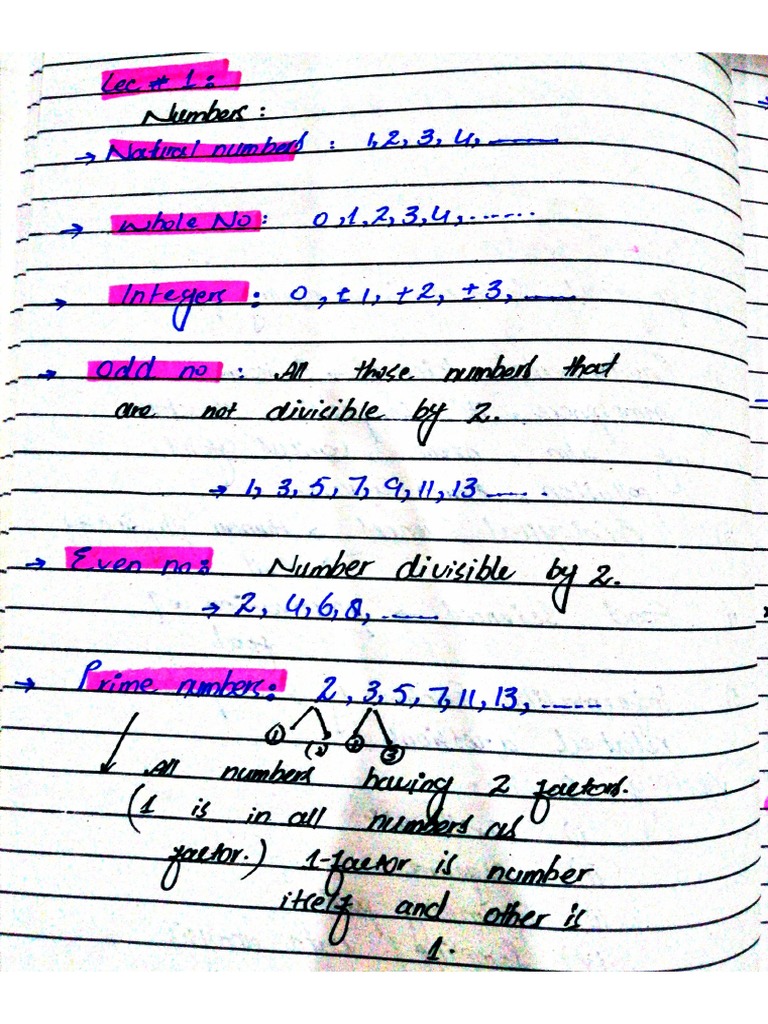 Lec # 1:
Numbers:
→ Natural numbers : 1, 2, 3, 4, ......
→ Whole No: 0, 1, 2, 3, 4, ......
→ Integers : 0, ±1, +2, ±3, ......
→ Odd no : All those numbers that
are not divisible by 2.
→ 1, 3, 5, 7, 9, 11, 13 ......
→ Even no: Number divisible by 2.
→ 2, 4, 6, 8, ......
→ Prime numbers: 2, 3, 5, 7, 11, 13, ......
① ② ③
All numbers having 2 factors.
(1 is in all numbers as
factor.) 1-factor is number
itself and other is
1.